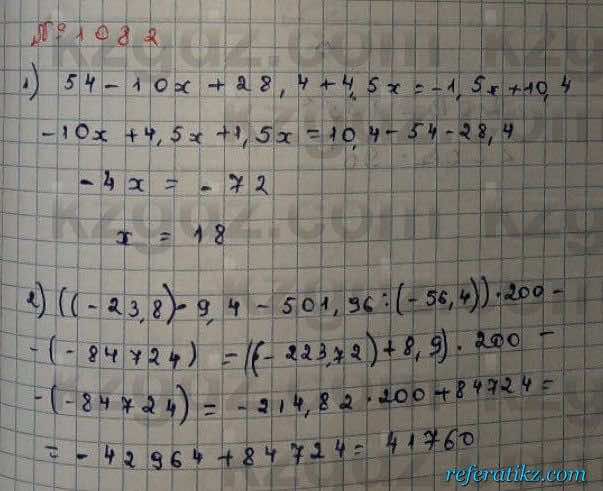 № 1082
1) 54-10x+28,4+4,5x=-1,5x+10,4
-10x+4,5x+1,5x=10,4-54-28,4
-4x = -72
x = 18
2) ((-23,8)·9,4-501,96:(-56,4))·200-
-(-84724) =((-223,72)+8,9)·200-
-(-84724)= -214,82·200+84724=
=-42964+84724= 41760
referatikz.com